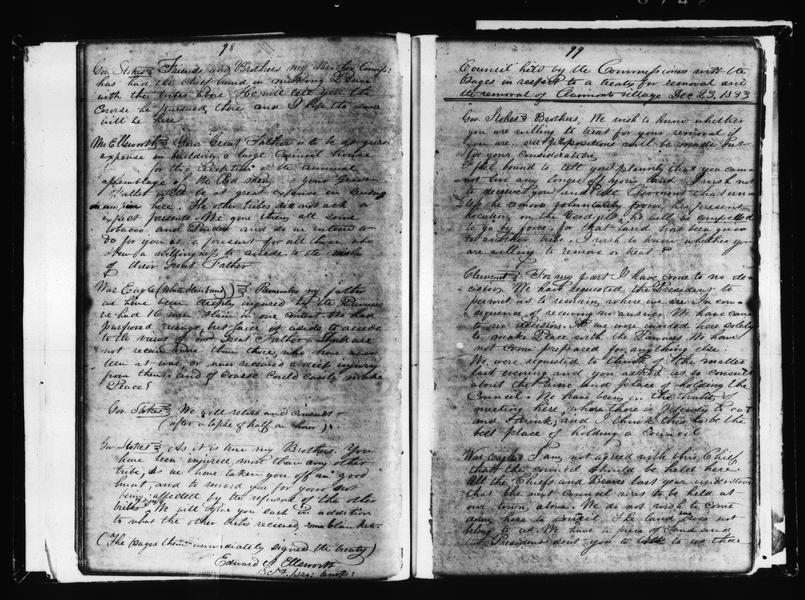 98
Gov. Stokes Friends and Brothers my Brother Comis:
has had the Chief bound in making Peace
with the tribes here. He will tell you the
course he pursued there and I hope the same
will be here
Mr. Ellsworth Your Great Father is to be at great
expense in building a large Council house
for the reception of the annual
of the Red men. Your Great
Father is at great expense in sending
here. The other tribes did not ask or
expect presents. We gave them all some
tobacco and Powder and so we intend to
do for you as a present for all those who
show a willingness to accede to the wish
of their Great Father
War Eagle Remember my father
we have been deeply injured by the Pawnees
we had 16 men slain in one
purposed revenge, but laid it aside to accede
to the views of our Great Father. Shall we
not receive more than those, who have never
been at war, or never received a deep injury
from them, and of course could easily make
Peace?
Gov. Stokes We will retire and consult
(after a lapse of half an hour)
Gov Stokes As it is true my Brothers. You
have been injured most than any other
tribe, as we have taken you off on good
hunt, and to reward you for your not
being affected by the refusal of the other
tribes. We will give you each in addition
to what the other tribes received, some blankets.
(The Osages then immediately signed the treaty)
Edward A. Ellsworth
99
Council held by the Commissioners with the
Osages in respect to a treaty for removal and
the removal of Clermonts village Dec 23, 1833
Gov Stokes Brothers, We wish to know whether
you are willing to treat for your removal if
you are, propositions will be made just
for your consideration
I feel bound to tell you plainly that you can
not live any longer I wish not
to deceive you and tell Clermont that
he remove voluntarily from his present
location, on the Verdigris, he will be compelled
to go by force, for that land has been given
to another tribe. I wish to know whether you
are willing to remove or treat
Clermont For my part I have come to no de
cision. We have requested the President to
permit us to remain, where we are. In con
sequence of receiving no answer, We have come
to no decision. We were invited here solely
to make Peace with the Pawnees We have
not come prepared for any thing else.
We were requested to think of the matter
last evening and you asked us to consult
about the time and place of holding the
Council. We have been in the habit of
meeting here, where there is plenty to eat
and drink, and I think this to be the
best place of holding a council
War Eagle I am not agreed with this Chief
that the council should be held here
All the Chiefs and Braves last year understood
that the next Council was to be held at
our town, above. We do not wish to come
down here to council. The land does not
belong to us. We have a piece of land and
our President sent you to talk to us that